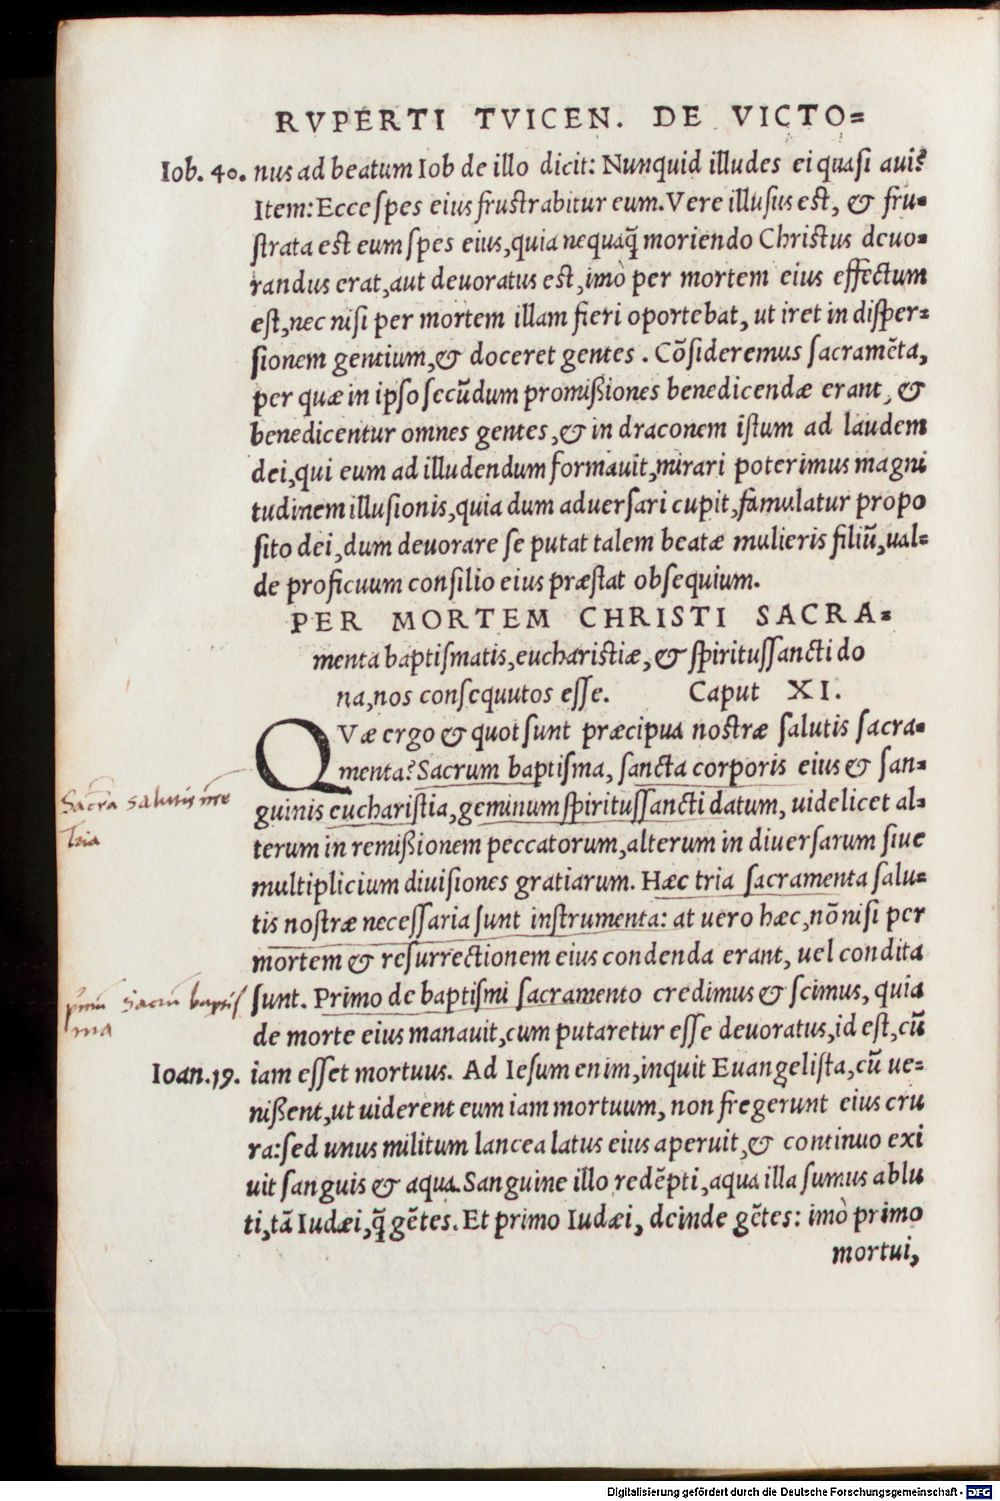 RVPERTI TVICEN. DE VICTO=
Iob. 40. nus ad beatum Iob de illo dicit: Nunquid illudes ei quasi aui?
Item: Ecce spes eius frustrabitur eum. Vere illusus est, & fru=
strata est eum spes eius, quia nequaq̃ moriendo Christus deuo=
randus erat, aut deuoratus est, imò per mortem eius effectum
est, nec nisi per mortem illam fieri oportebat, ut iret in disper=
sionem gentium, & doceret gentes. Cõsideremus sacramẽta,
per quæ in ipso secũdum promißiones benedicendæ erant, &
benedicentur omnes gentes, & in draconem istum ad laudem
dei, qui eum ad illudendum formauit, mirari poterimus magni
tudinem illusionis, quia dum aduersari cupit, famulatur propo
sito dei, dum deuorare se putat talem beatæ mulieris filiũ, ual=
de proficuum consilio eius præstat obsequium.
PER MORTEM CHRISTI SACRA=
menta baptismatis, eucharistiæ, & spiritussancti do
na, nos consequutos esse. Caput XI.
QVæ ergo & quot sunt præcipua nostræ salutis sacra=
menta? Sacrum baptisma, sancta corporis eius & san=
guinis eucharistia, geminum spiritussancti datum, uidelicet al=
Sacra salutis nre
tria
terum in remißionem peccatorum, alterum in diuersarum siue
multiplicium diuisiones gratiarum. Hæc tria sacramenta salu=
tis nostræ necessaria sunt instrumenta: at uero hæc, nõ nisi per
mortem & resurrectionem eius condenda erant, uel condita
sunt. Primo de baptismi sacramento credimus & scimus, quia
pmũ sacrũ baptis
ma
de morte eius manauit, cum putaretur esse deuoratus, id est, cũ
Ioan. 19. iam esset mortuus. Ad Iesum enim, inquit Euangelista, cũ ue=
nißent, ut uiderent eum iam mortuum, non fregerunt eius cru
ra: sed unus militum lancea latus eius aperuit, & continuo exi
uit sanguis & aqua. Sanguine illo redẽpti, aqua illa sumus ablu
ti, tã Iudæi, q̃ gẽtes. Et primo Iudæi, deinde gẽtes: imò primo
mortui,
Digitalisierung gefördert durch die Deutsche Forschungsgemeinschaft - DFG